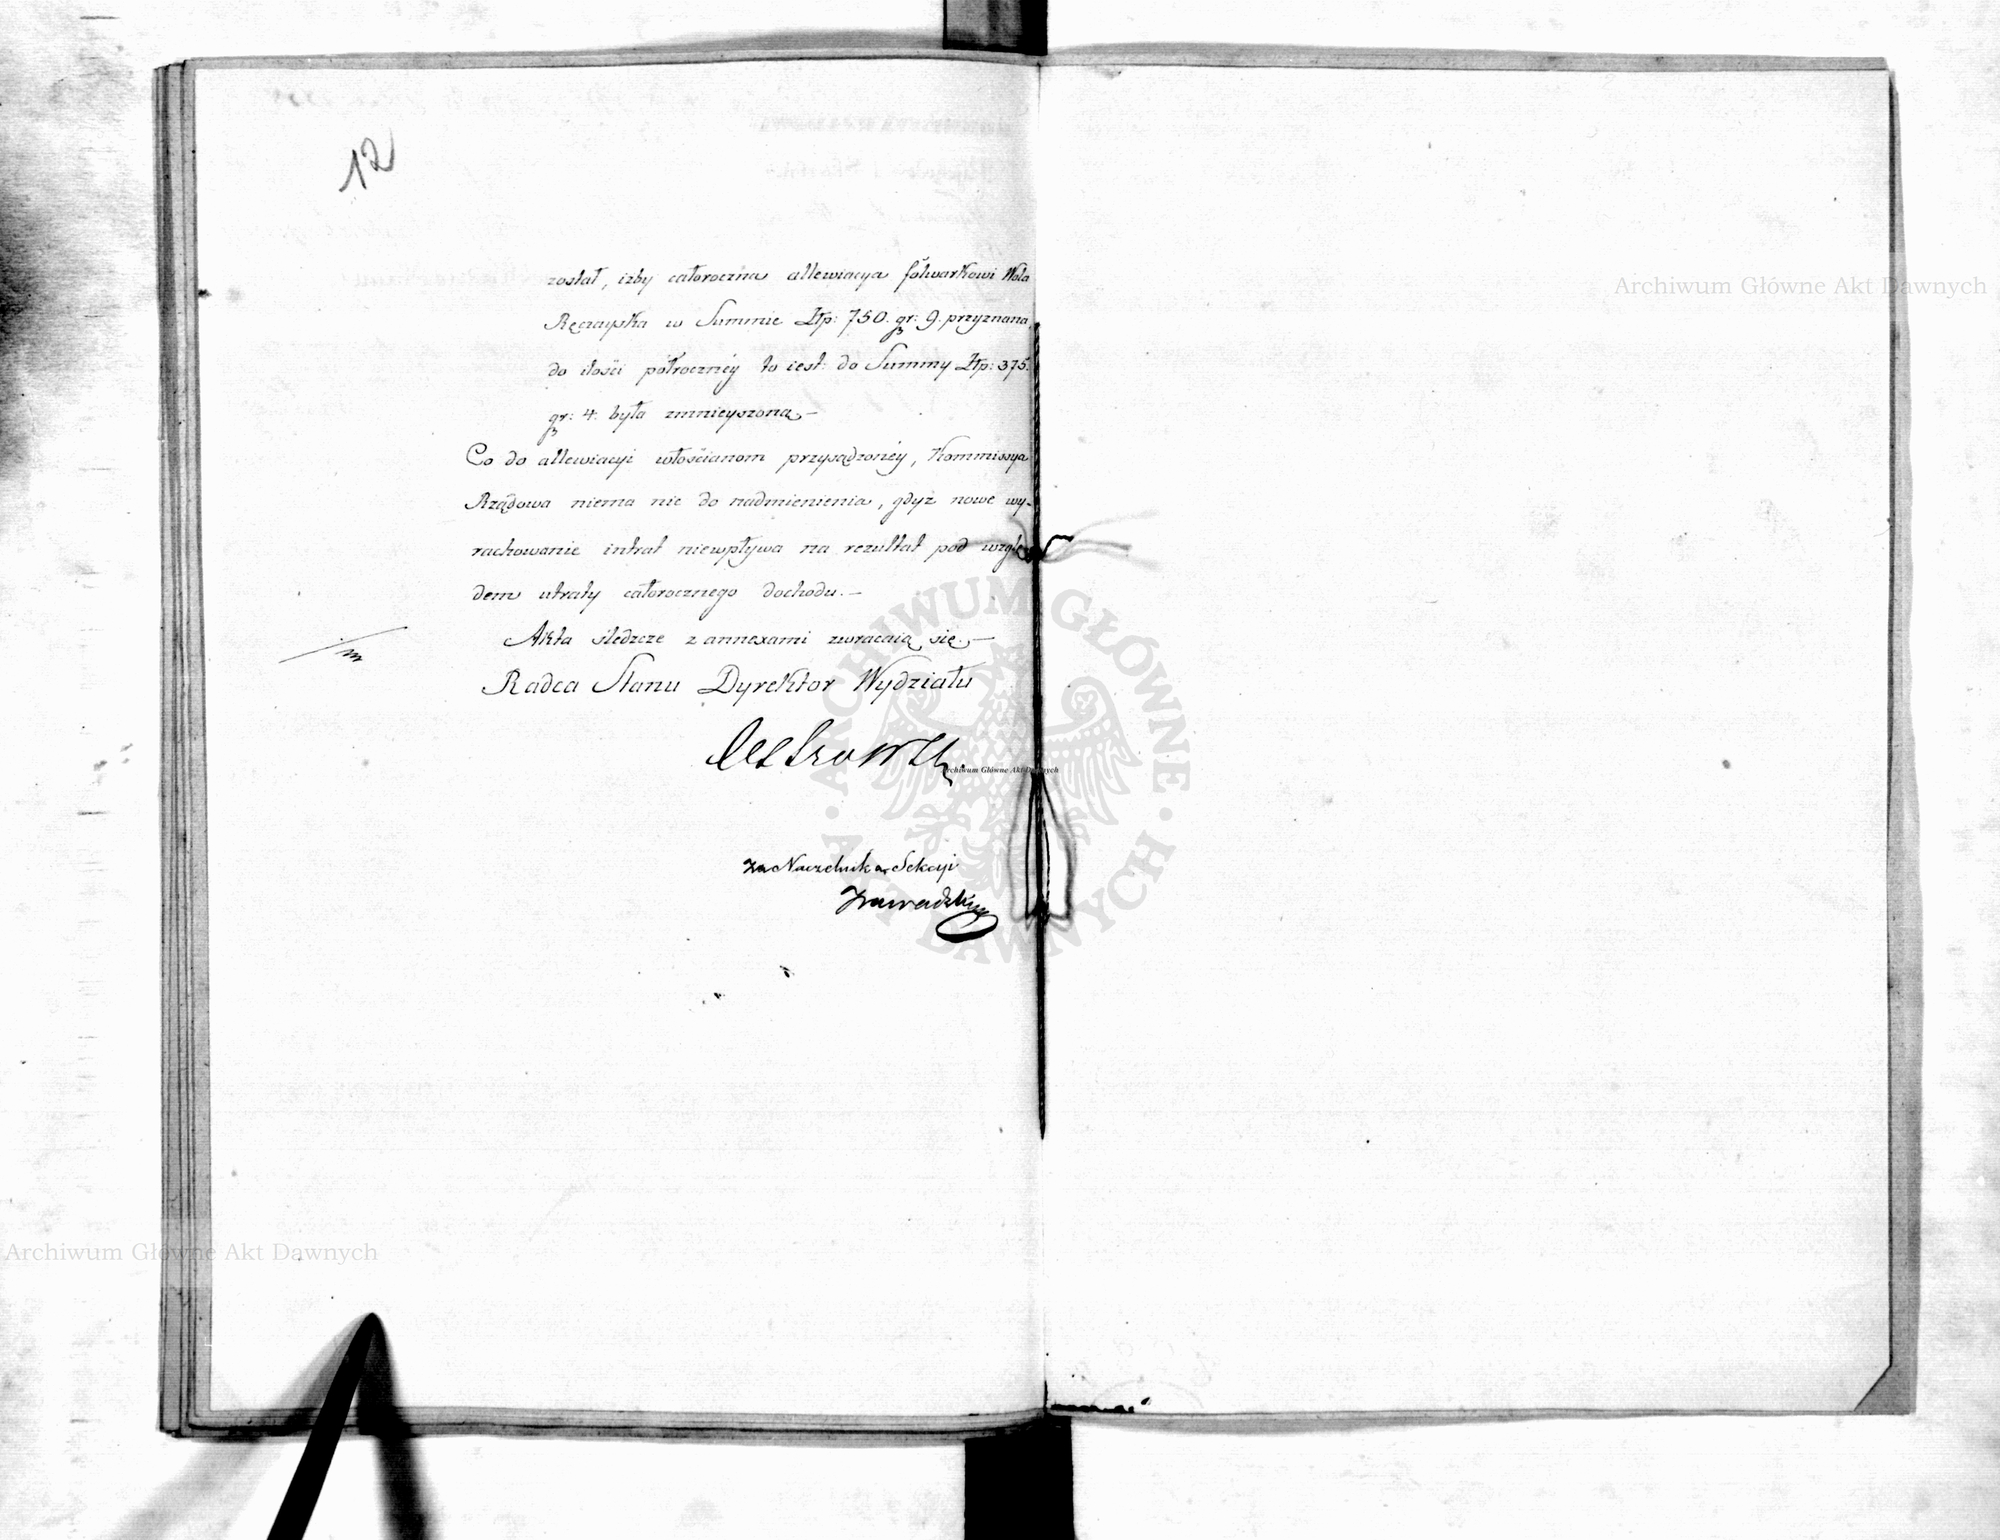 12
został, iżby całoroczna allewiacya folwarkowi Wola
Ręczayska w Summie Złp: 750. gr: 9. przyznana,
do ilości półrocznéy to iest: do Summy Złp: 375.
gr: 4. była zmnieyszoną.—
Co do allewiacyi włościanom przysądzonéy, Kommissya
Rządowa niema nic do nadmienienia, gdyż nowe wy-
rachowanie intrat niewpływa na rezultat pod wzglę-
dem utraty całorocznego dochodu.—
Akta śledzcze z annexami zwracaią się.—
Radca Stanu Dyrektor Wydziału
za Naczelnika Sekcyi
Zawadzki
Archiwum Główne Akt Dawnych
Archiwum Główne Akt Dawnych
Archiwum Główne Akt Dawnych
ARCHIWUM GŁÓWNE · AKT DAWNYCH ·